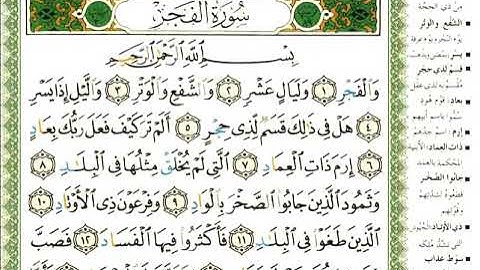 سُورَةُ الفَجْرِ
بِسْمِ ٱللَّهِ ٱلرَّحْمَٰنِ ٱلرَّحِيمِ
وَٱلْفَجْرِ ۝١ وَلَيَالٍ عَشْرٍ ۝٢ وَٱلشَّفْعِ وَٱلْوَتْرِ ۝٣ وَٱلَّيْلِ إِذَا يَسْرِ
۝٤ هَلْ فِى ذَٰلِكَ قَسَمٌ لِّذِى حِجْرٍ ۝٥ أَلَمْ تَرَ كَيْفَ فَعَلَ رَبُّكَ بِعَادٍ
۝٦ إِرَمَ ذَاتِ ٱلْعِمَادِ ۝٧ ٱلَّتِى لَمْ يُخْلَقْ مِثْلُهَا فِى ٱلْبِلَٰدِ ۝٨
وَثَمُودَ ٱلَّذِينَ جَابُوا۟ ٱلصَّخْرَ بِٱلْوَادِ ۝٩ وَفِرْعَوْنَ ذِى ٱلْأَوْتَادِ ۝١٠
ٱلَّذِينَ طَغَوْا۟ فِى ٱلْبِلَٰدِ ۝١١ فَأَكْثَرُوا۟ فِيهَا ٱلْفَسَادَ ۝١٢ فَصَبَّ
من ذي الحجّة
الشَّفْعِ والوَتْرِ
يَسْرِ
قَسَمٌ لِّذِي حِجْرٍ
بِعَادٍ
إِرَمَ
ذاتِ العِمادِ
جابُوا الصَّخْرَ
ذي الأوتادِ
سَوْطَ عذابٍ